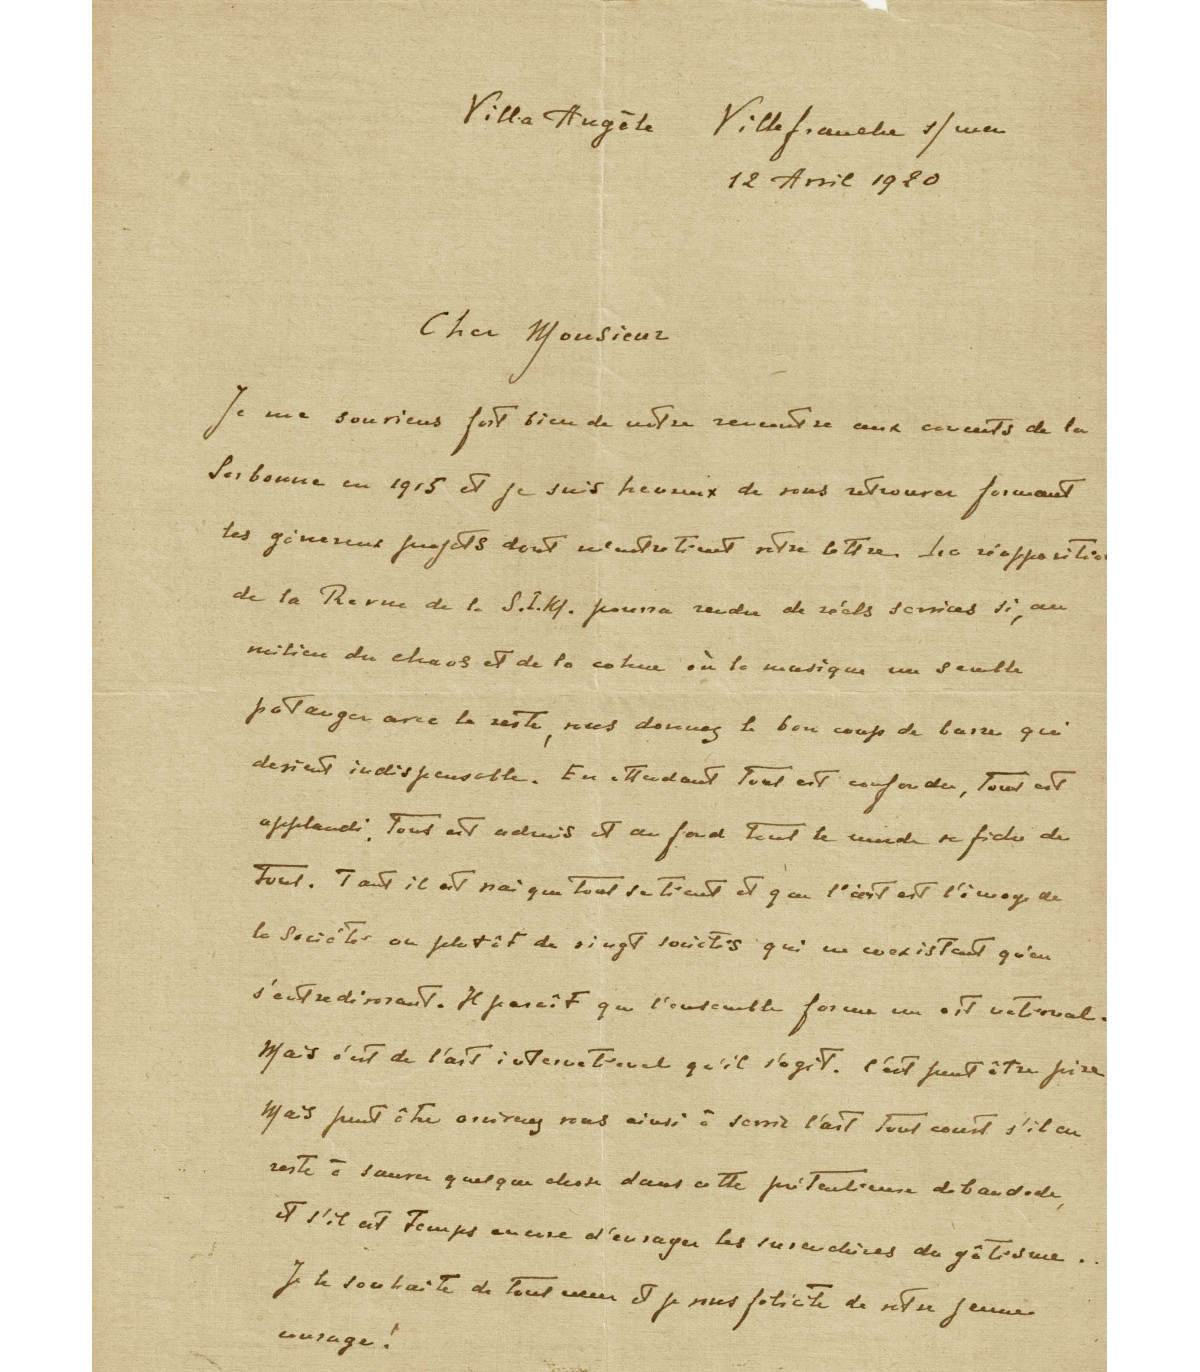 Villa Angèle Villefranche s/mer
12 Avril 1920
Cher Monsieur
Je me souviens fort bien de notre rencontre aux concerts de la
Sorbonne en 1915 et je suis heureux de vous retrouver formant
les généreux projets dont m'entretient votre lettre. La réapparition
de la Revue de la S.I.M. pourra rendre de réels services si, au
milieu du chaos et de la cohue où la musique me semble
patauger avec le reste, vous donnez le bon coup de barre qui
devient indispensable. En attendant tout est confondu, tout est
applaudi, tout est admis et au fond tout le monde se fiche de
tout. Tant il est vrai que tout se tient et que l'art est l'image de
la Société ou plutôt de vingt sociétés qui ne coexistent qu'en
s'entredévorant. Il paraît que l'ensemble forme un art national.
Mais c'est de l'art international qu'il s'agit. C'est peut être pire
Mais peut être arriverez vous ainsi à servir l'art tout court s'il en
reste à sauver quelque chose dans cette prétentieuse débandade,
et s'il est temps encore d'enrayer les surenchères du gâtisme ..
Je le souhaite de tout cœur et je vous félicite de votre jeune
courage !